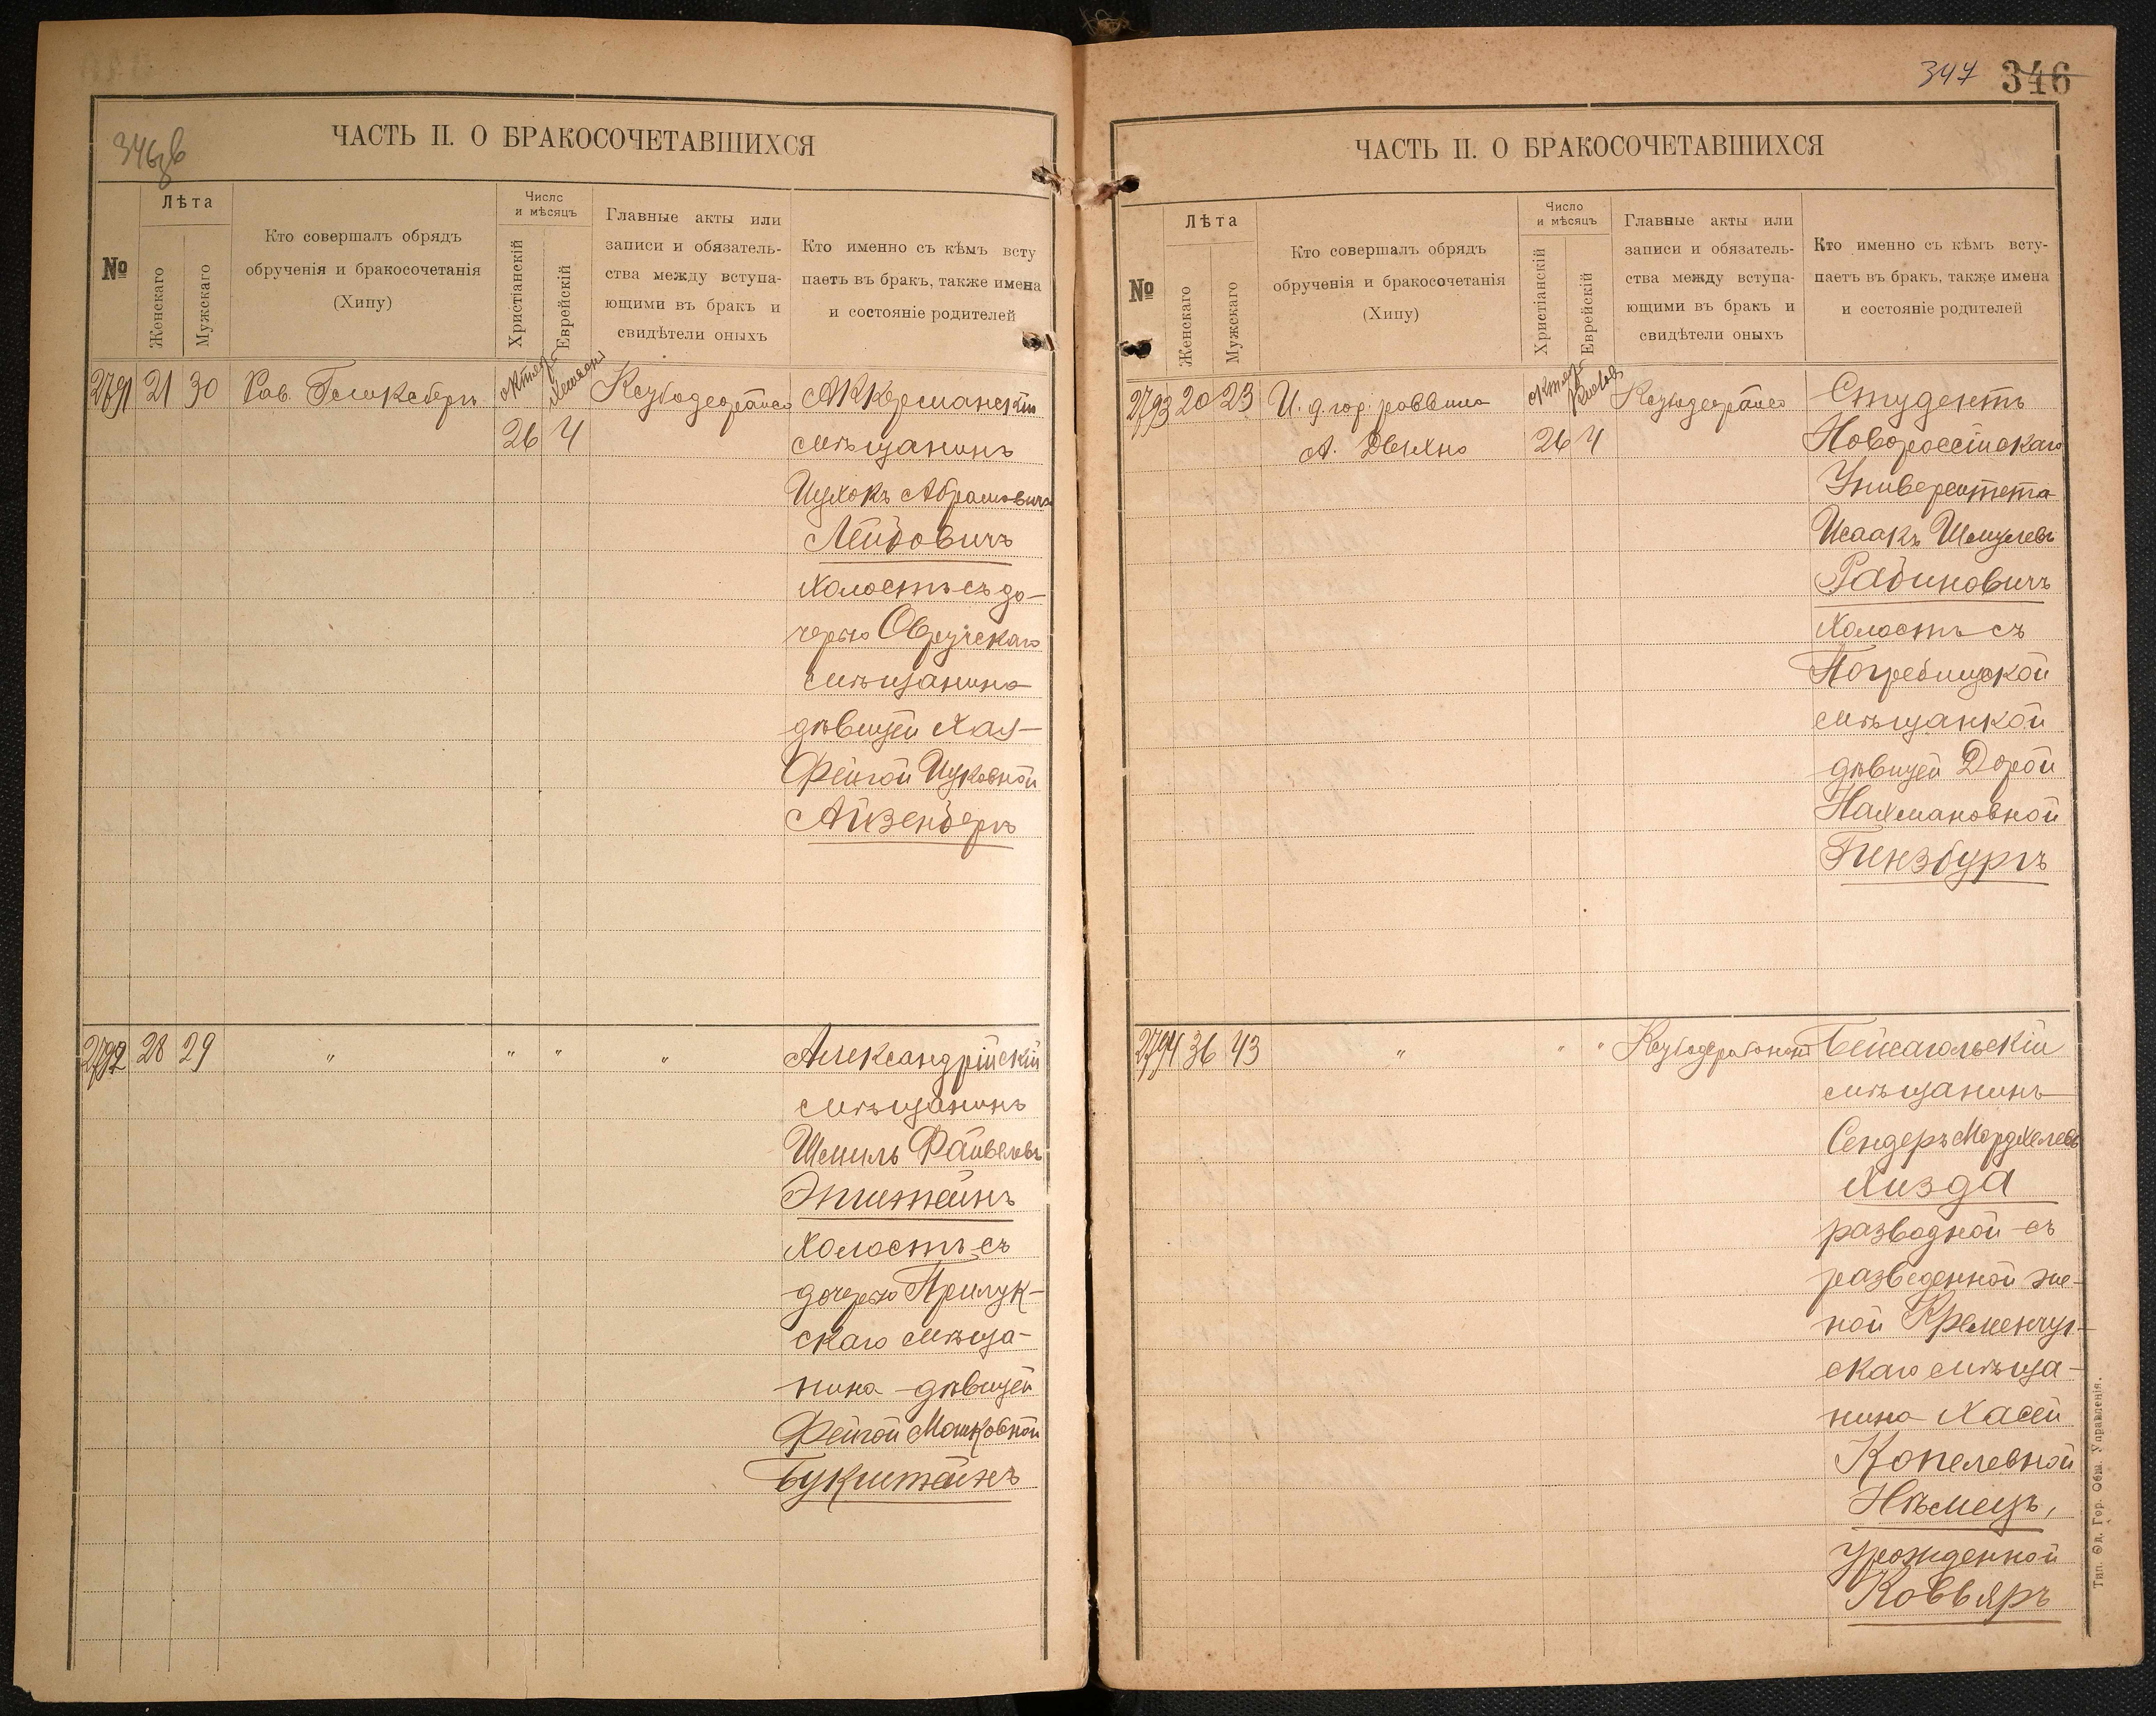 346 об
ЧАСТЬ II. О БРАКОСОЧЕТАВШИХСЯ
№
Лѣта
Женскаго
Мужскаго
Кто совершалъ обрядъ
обрученія и бракосочетанія
(Хипу)
Число
и мѣсяцъ
Христіанскій
Еврейскій
Главные акты или
записи и обязатель-
ства между вступа-
ющими въ бракъ и
свидѣтели оныхъ
Кто именно съ кѣмъ всту
паетъ въ бракъ, также имена
и состояніе родителей
2791 21 30 Рав.
26 4
Аккерманскій
мѣщанинъ
Ицхокъ Абрамовичъ
Лейбовичъ
холостъ съ до-
черью Овручскаго
мѣщанина
дѣвицей Хая-
Фейгой Ицковной
Айзенбергъ
2792 28 29 " " " "
Александрійскій
мѣщанинъ
Шмиль Файвелевъ
Эпштейнъ
холостъ съ
дочерью Прилук-
скаго мѣща-
нина дѣвицей
Фейгой Мошковной
Букштейнъ
347 346
ЧАСТЬ II. О БРАКОСОЧЕТАВШИХСЯ
№
Лѣта
Женскаго
Мужскаго
Кто совершалъ обрядъ
обрученія и бракосочетанія
(Хипу)
Число
и мѣсяцъ
Христіанскій
Еврейскій
Главные акты или
записи и обязатель-
ства между вступа-
ющими въ бракъ и
свидѣтели оныхъ
Кто именно съ кѣмъ всту-
паетъ въ бракъ, также имена
и состояніе родителей
2793 20 23 И. д. гор. раввина
А. Двихно 26 4
Студентъ
Новороссійскаго
Университета
Исаакъ Шмулевъ
Рабиновичъ
холостъ съ
Погребищской
мѣщанкой
дѣвицей Дорой
Нахмановной
Гинзбургъ
2794 36 43 " " "
Бейсагольскій
мѣщанинъ
Сендеръ Мордхелевъ
Хизда
разводной съ
разведенной же-
ной Кременчуг-
скаго мѣща-
нина Хасей
Копелевной
Нѣмецъ,
урожденной
Коввяръ
Тип. Од. Гор. Общ. Управленія.